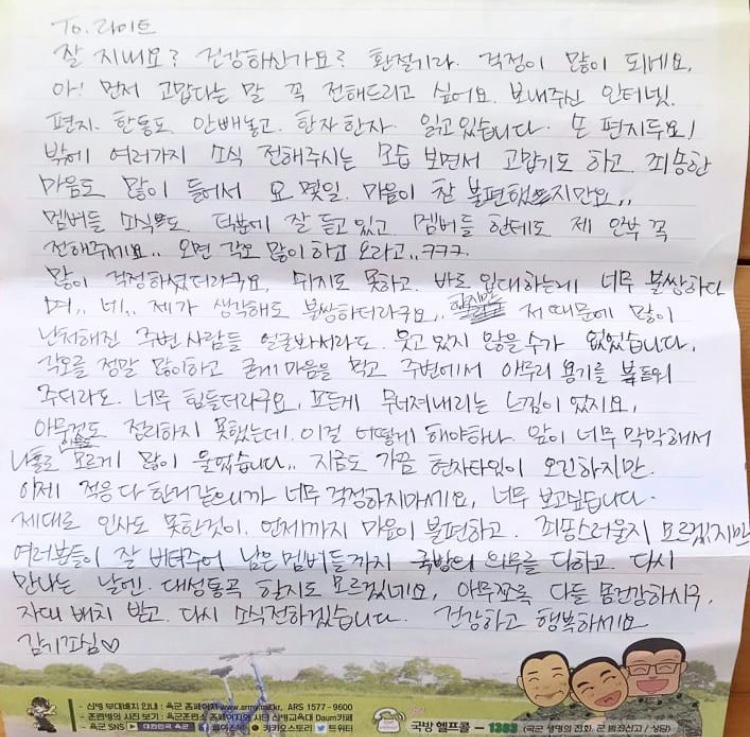 To. 라이트
잘 지내요? 건강하신가요? 환절기라. 걱정이 많이 되네요.
아! 먼저 고맙다는 말 꼭 전해드리고 싶어요. 보내주신 인터넷.
편지. 한통도 안빼놓고. 한자 한자. 읽고있습니다. 손 편지두요!
밖에 여러가지 소식 전해주시는 모습 보면서 고맙기도 하고. 죄송한
마음도 많이 들어서 요 몇일. 마음이 참 불편했지만요..
멤버들 소식도. 덕분에 잘 듣고 있고. 멤버들 한테도 제 안부 꼭
전해주세요.. 오면 각오 많이 하고 오라고..ㅋㅋㅋ.
많이 걱정하셨더라구요, 쉬지도 못하고. 바로 입대하는게 너무 불쌍하다
며.. 네!.. 제가 생각해도 불쌍하더라구요.. 하지만 저 때문에 많이
난처해진 주변 사람들 얼굴봐서라도. 웃고 있지 않을수가 없었습니다.
각오를 정말 많이하고 굳게 마음을 먹고 주변에서 아무리 용기를 북돋워
주더라도. 너무 힘들더라구요. 모든게 무너져내리는 느낌이 있지요.
아무것도 정리하지 못했는데. 이걸 어떻게 해야하나. 앞이 너무 막막해서
나도 모르게 많이 울었습니다.. 지금도 가끔 현자타임이 오긴하지만.
이제 적응 다 한거같으니까 너무 걱정하지마세요, 너무 보고싶습니다.
제대로 인사도 못한것이. 언제까지 마음이 불편하고. 죄송스러울지 모르겠지만
여러분들이 잘 버텨주어 남은 멤버들까지 국방의 의무를 다하고. 다시
만나는 날엔. 대성통곡 할지도 모르겠네요, 아무쪼록 다들 몸건강하시구,
자대 배치 받고. 다시 소식전하겠습니다. 건강하고 행복하세요
감기조심♡
- 신병 부대배치 안내 : 육군 홈페이지 www.army.mil.kr, ARS 1577 - 9600
- 훈련병의 사진 보기 : 육군훈련소 홈페이지와 사단 신병교육대 Daum카페
- 육군 SNS ▶ 대한민국 육군 페이스북 카카오스토리 트위터
국방헬프콜 - 1303 (국군 생명의 전화, 군 범죄신고 / 상담)